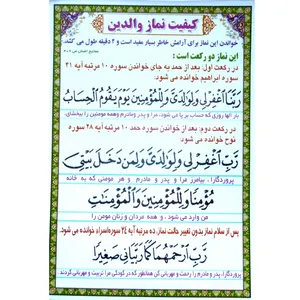 کیفیت نماز والدین
خواندن این نماز برای آرامش خاطر بسیار مفید است و ۲ دقیقه طول می کشد.
این نماز دو رکعت است:
در رکعت اول: بعد از حمد به جای خواندن سوره ۱۰ مرتبه آیه ۴۱
سوره ابراهیم خوانده می شود.
رَبَّنَا اغْفِرْ لِی وَلِوَالِدَیَّ وَلِلْمُؤْمِنِینَ یَوْمَ یَقُومُ الْحِسَابُ
بار الها روزی که حساب بر پا می شود، مرا و پدر ومادرم وهمه مومنین را ببخشای.
در رکعت دوم: بعد از حمد ۱۰ مرتبه آیه ۲۸ سوره
نوح خوانده می شود.
رَبِّ اغْفِرْ لِی وَلِوَالِدَیَّ وَلِمَن دَخَلَ بَیْتِیَ
پروردگارا، بیامرز مرا و پدر و مادرم و هر مومنی که به خانه
مُؤْمِنًا وَلِلْمُؤْمِنِینَ وَالْمُؤْمِنَاتِ
من وارد می شود، و همه مردان و زنان مومن را
پس از سلام نماز بدون تغییر حالت نماز، ده مرتبه آیه ۲٤ سوره اسراء خوانده می شود.
رَبِّ ارْحَمْهُمَا کَمَا رَبَّیَانِی صَغِیرًا
پروردگارا، پدر و مادرم را رحمت و مهربانی کن همانطور که در کودکی مرا تربیت و مهربانی کردند